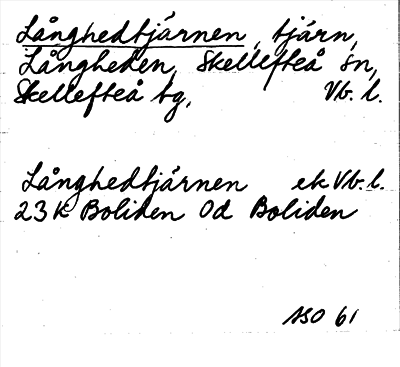 Långhedtjärnen, tjärn,
Långheden, Skellefteå sn,
Skellefteå tg, Vb. l.
Långhedtjärnen ek Vb. l.
23 K Boliden 0d Boliden
ASO 61